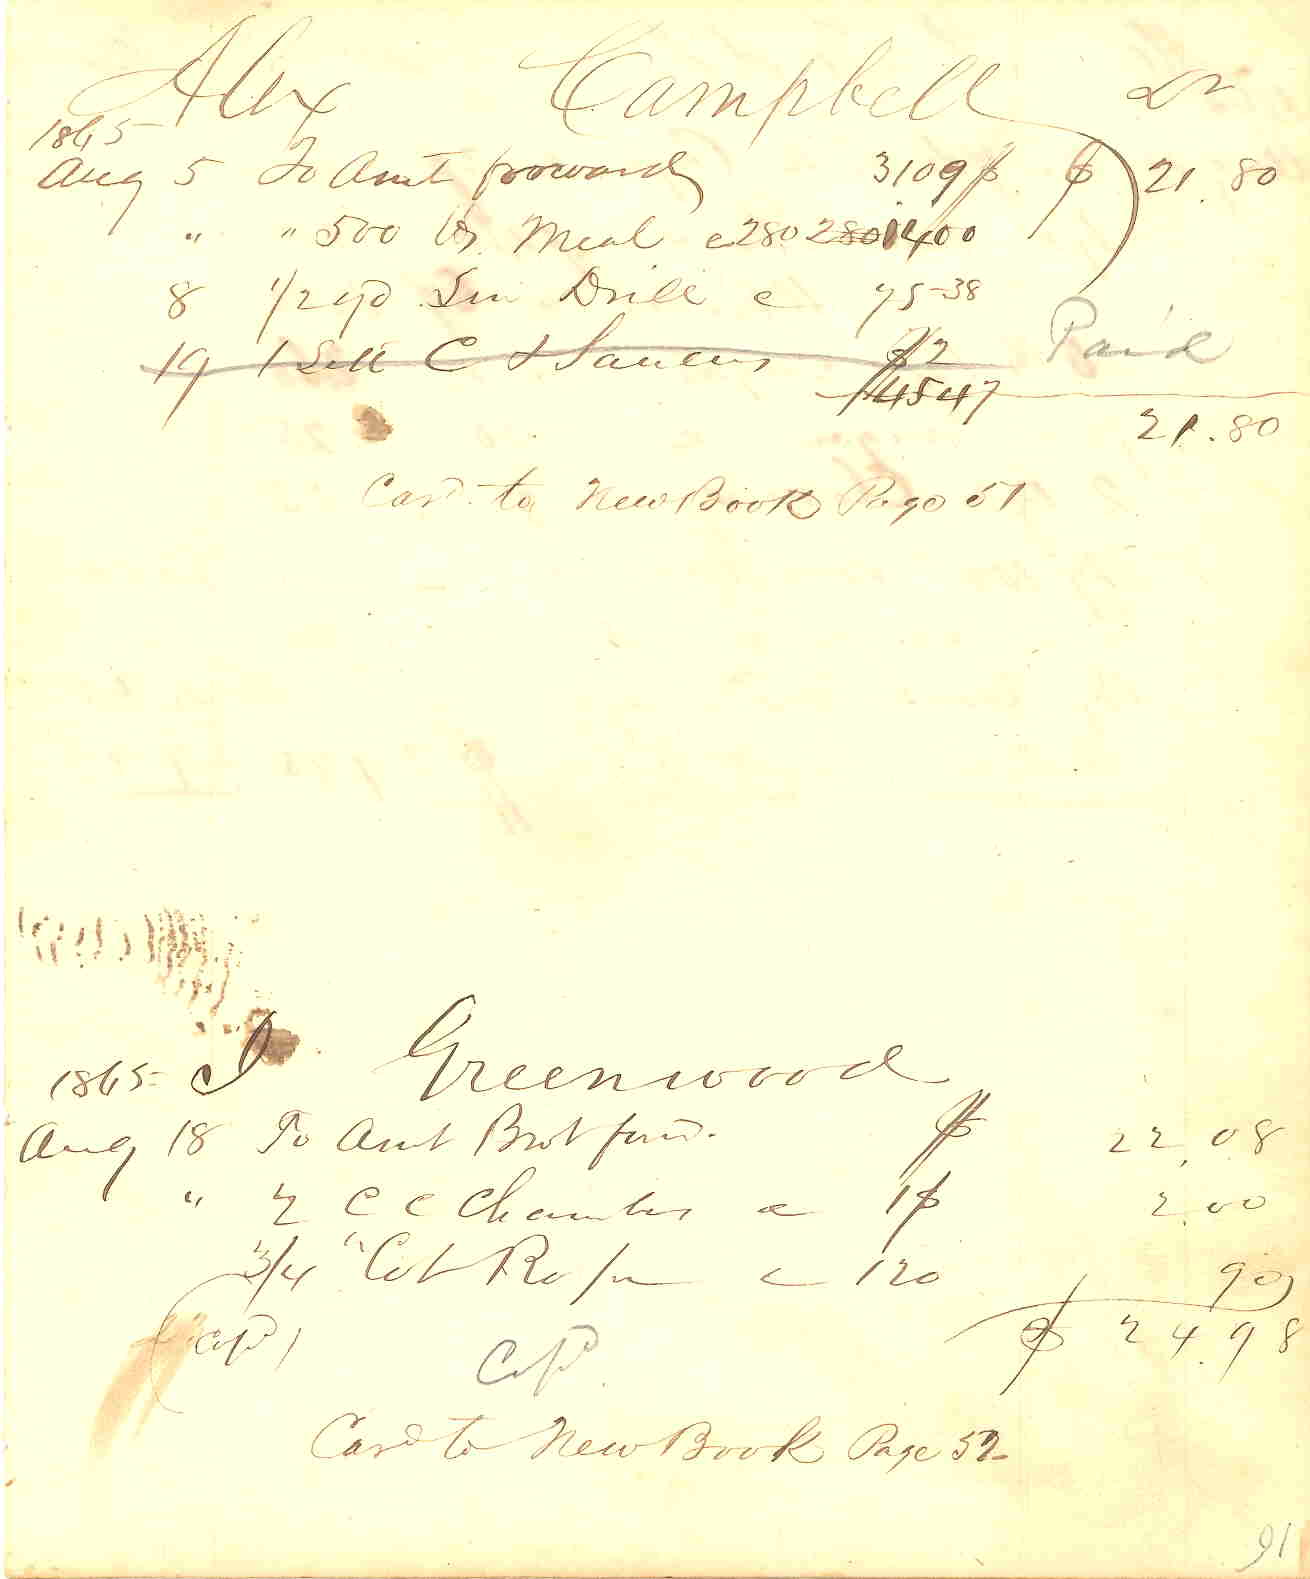 Alex Campbell Dr
1865
Aug 5 To Amt forward 3109 $ $ 21.80
" " 500 lbs. Meal c 280 280 1400
8 1/2 yd Drill c 75 38
19 1 Sett C & Saucers $2 Paid
$4547
21.80
Card to New Book Page 51
1865 J Greenwood
Aug 18 To Amt Brot ford. $ 22.08
" 2 C C Chambers c 1$ 2.00
3/4 " Cot Rope c 120 90
(Copd) $ 24.98
Copd
Card to New Book Page 52
91